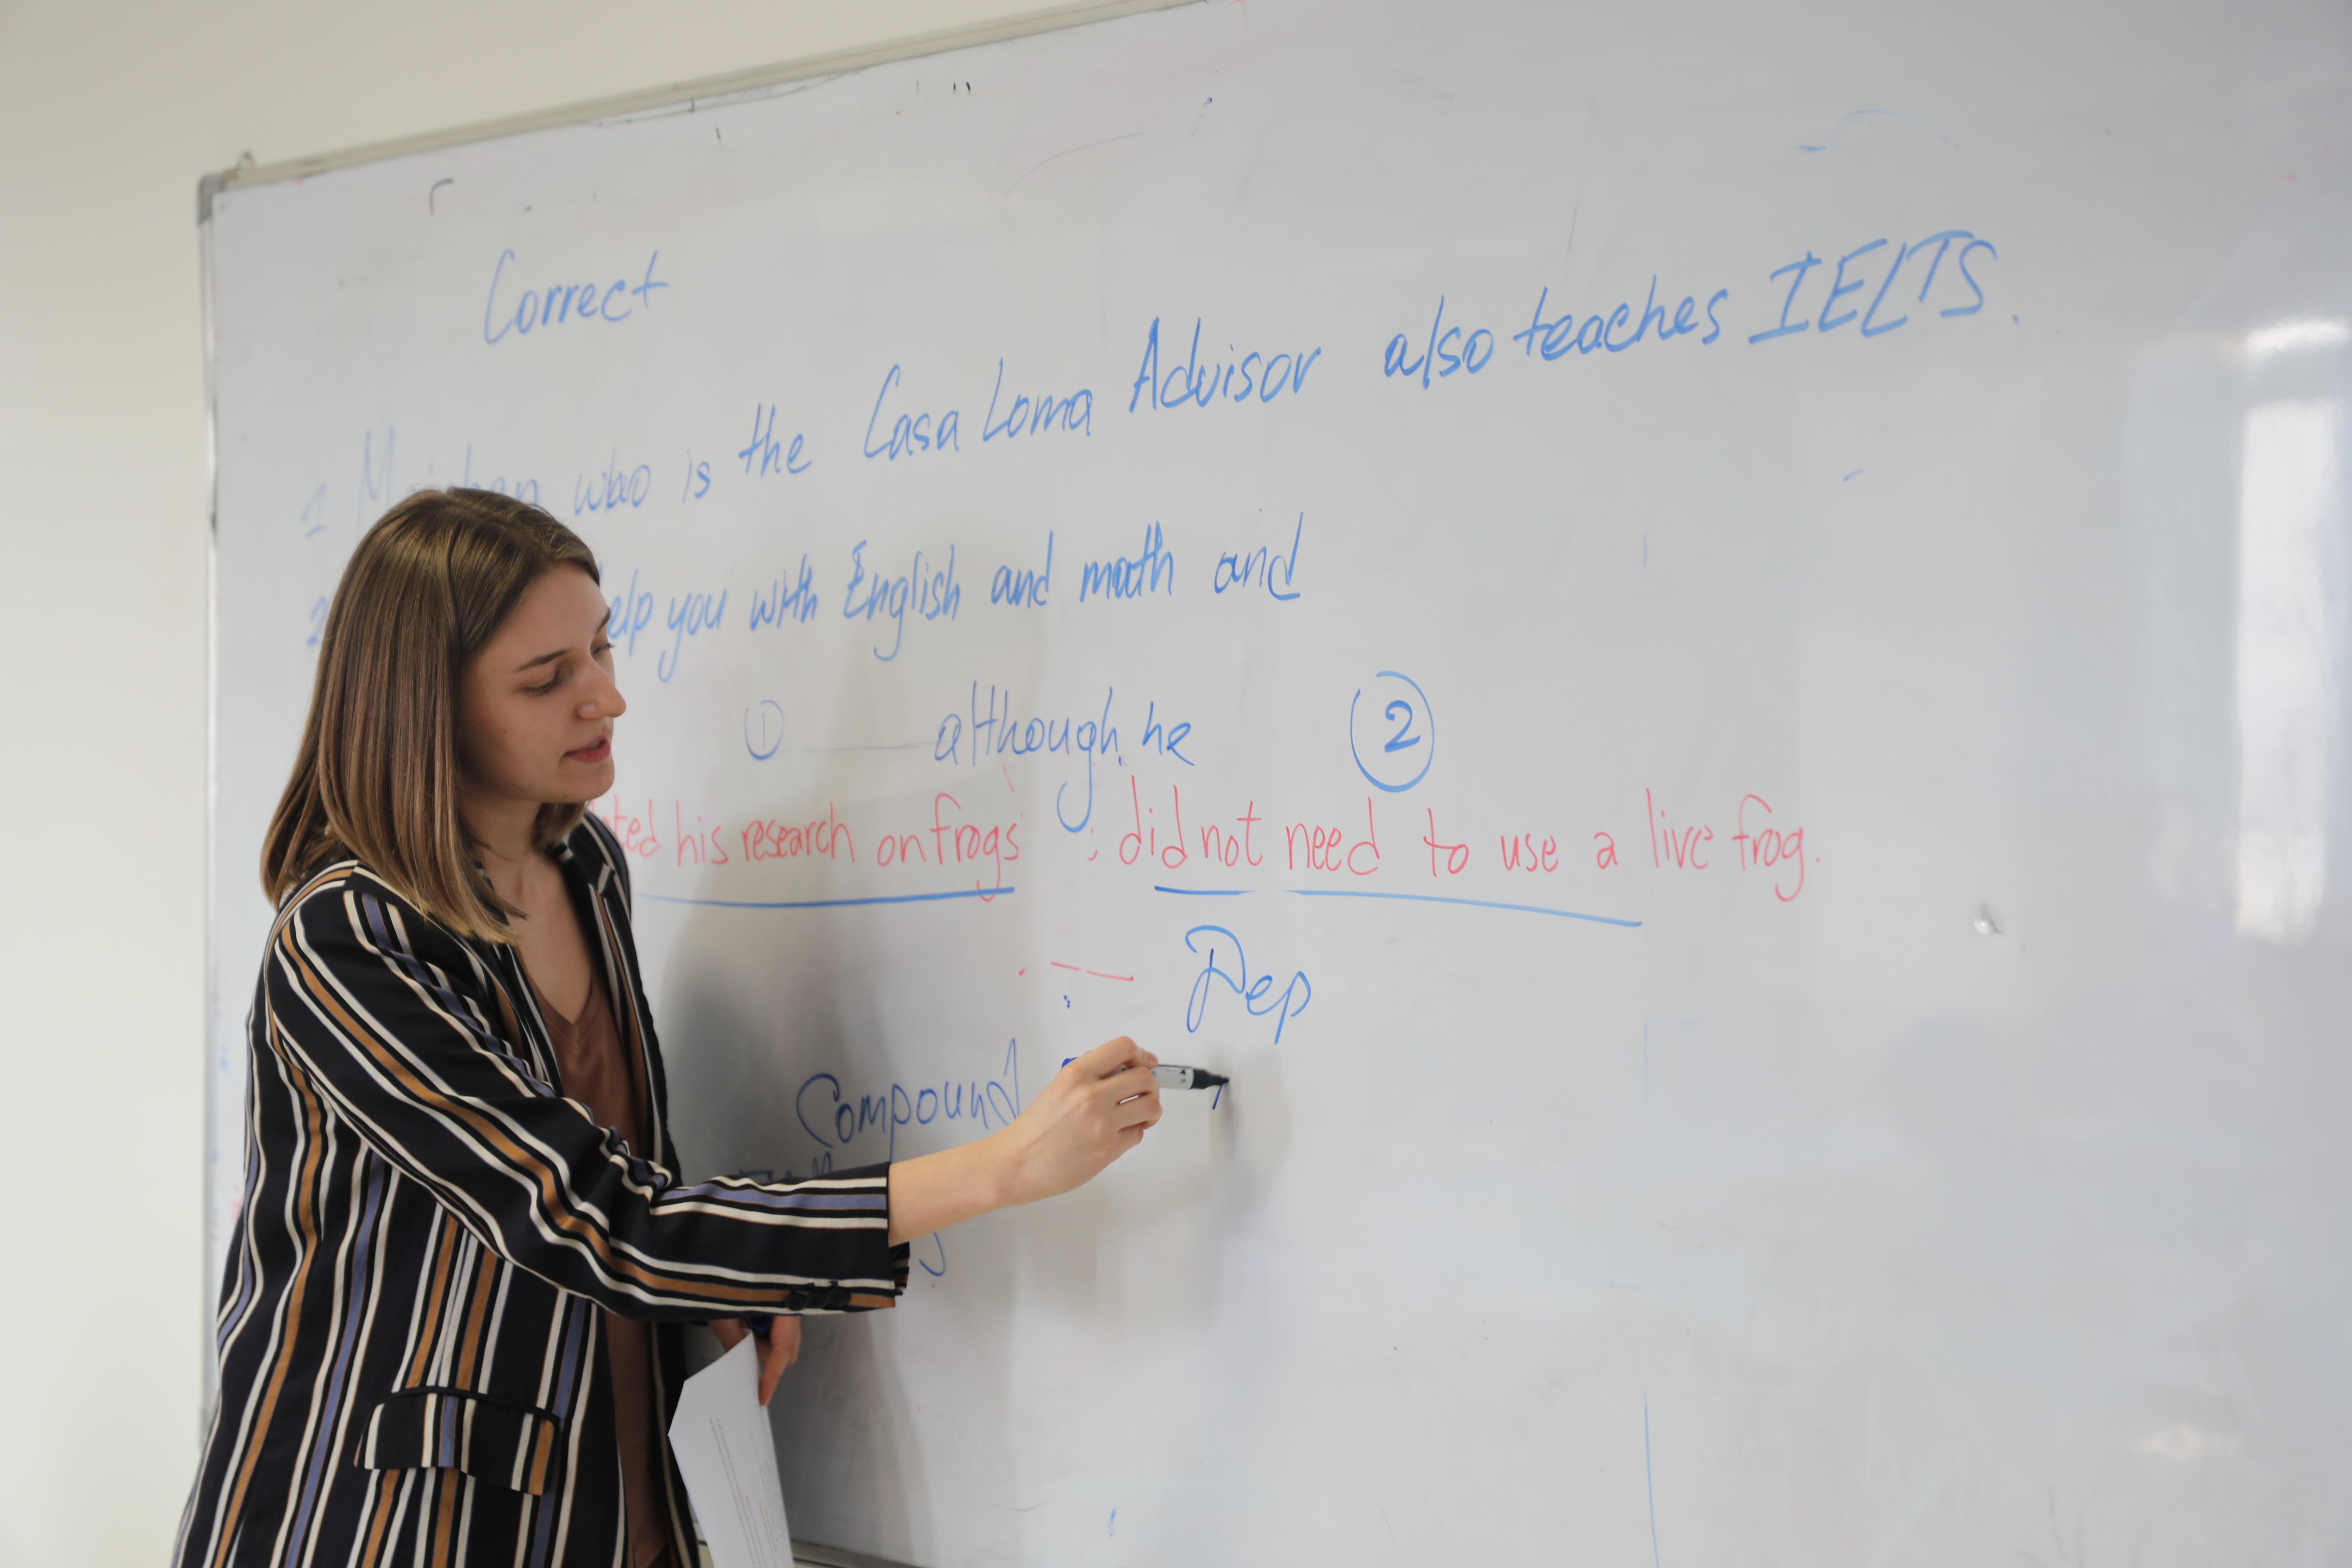 Correct
1 who is the Casa Loma Advisor also teaches IELTS.
2 elp you with English and math and
① although he ②
ted his research on frogs : did not need to use a live frog.
Dep
Compound